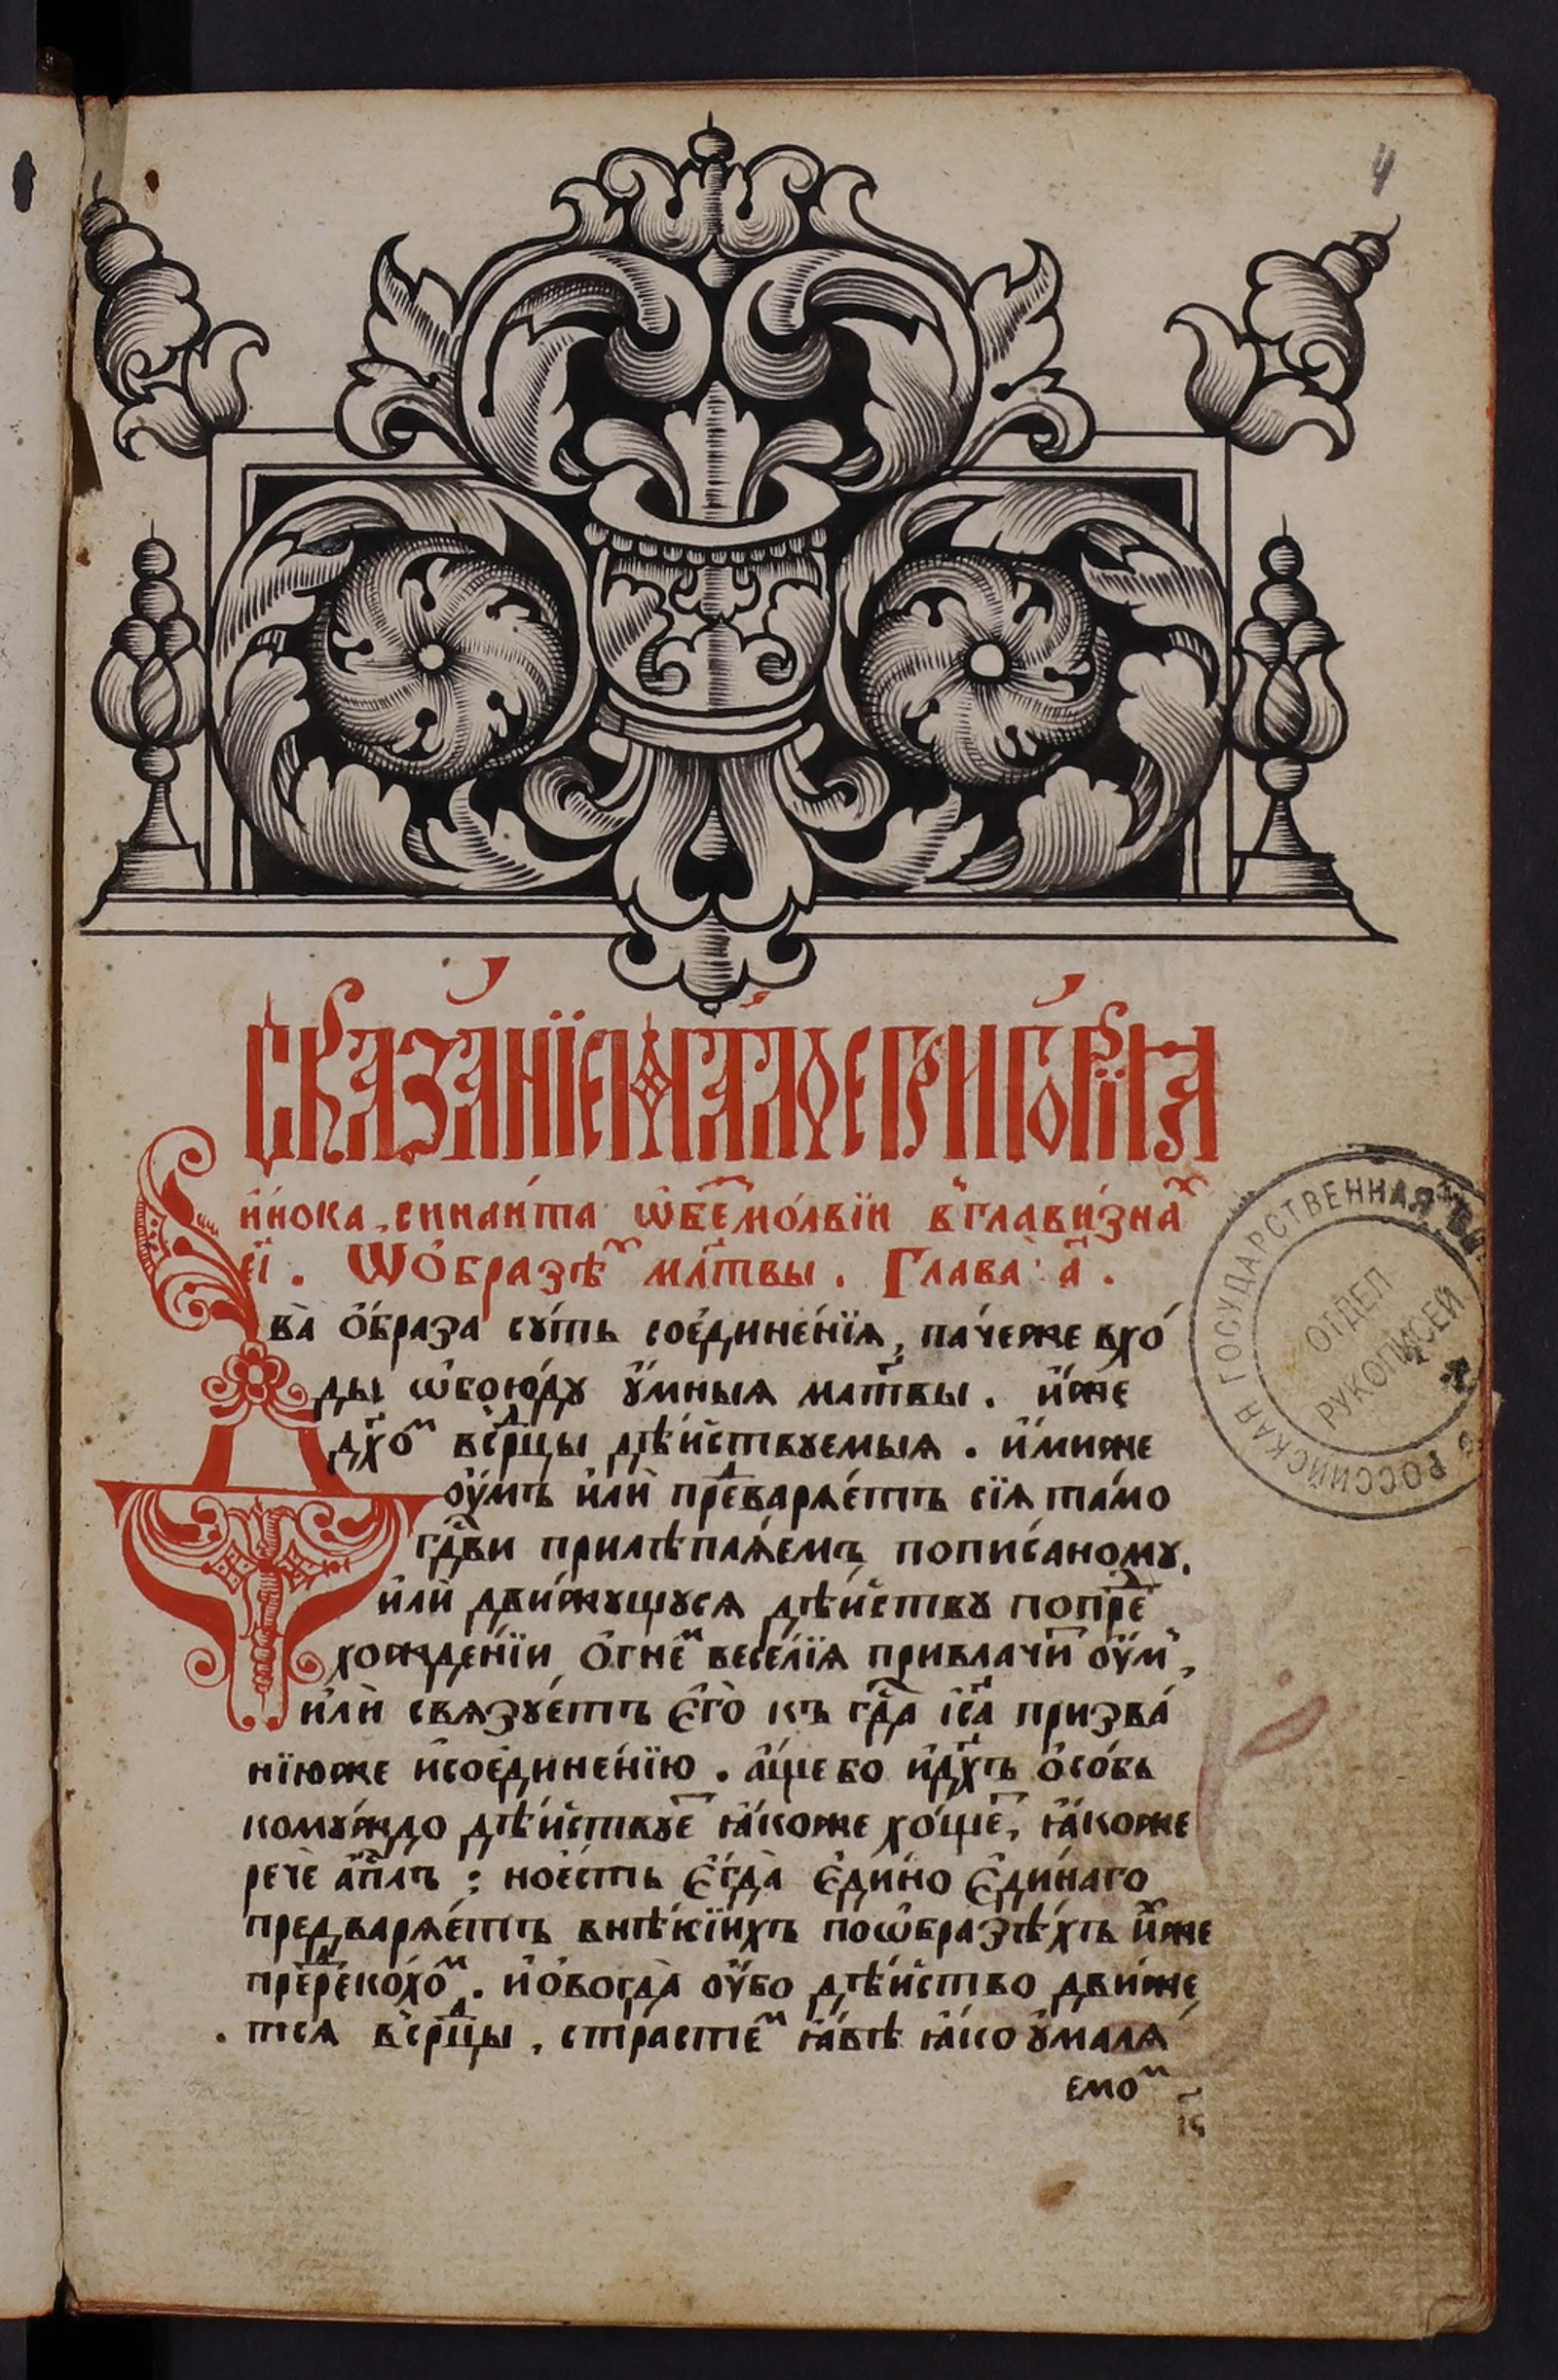 4
Сказа́нїе ст҃а́гѡ Григо́рїѧ
и҆́нока, синаи́та ѡ҆ без̾мо́лвїи в̾главизна́х
е҃і. Ѡ҆ о҆́бразѣх мл҃твы. Глава̀ а҃.
Два̀ о҆́браза сꙋ́ть сое҆дине́нїѧ, па́чеже вхо́
ды ѡ҆бою́дꙋ ᲂу҆́мныѧ мл҃твы. и҆́же
дх҃о́м в̾срⷣцы дѣ́йствꙋемыѧ. и҆́миже
ᲂу҆́мъ и҆лѝ преⷣварѧ́етъ сїѧ̀ та́мо
гдⷭ҇ви прилѣплѧ́емъ пописа́номꙋ,
и҆лѝ дви́жꙋщꙋсѧ дѣ́йствꙋ попре
хожде́нїи ѻ҆́гнем весе́лїѧ привлачи́т ᲂу҆́м,
и҆лѝ свѧзꙋ́етъ є҆го̀ къ гдⷭ҇а і҆с҃а призва́
нїюже и҆сое҆дине́нїю. а҆́ще бо и҆дх҃ъ ѻ҆со́бь
комꙋ́ждо дѣ́йствꙋет ꙗ҆́коже хо́щет, ꙗ҆́коже
речѐ а҆пⷭ҇лъ: ное҆́сть є҆гда̀ є҆ди́но є҆ди́наго
предварѧ́етъ внѣ́кїихъ поѡ҆́бразѣхъ и҆́хже
пре́дреко́хом. и҆ѻ҆вогда̀ ᲂу҆́бо дѣ́йство дви́же
тсѧ в̾срⷣцы, страсте́м ꙗ҆́вѣ ꙗ҆́ко ᲂу҆малѧ́
емом
ГОСУДАРСТВЕННАЯ
РОССИЙСКАЯ
ОТДЕЛ
РУКОПИСЕЙ